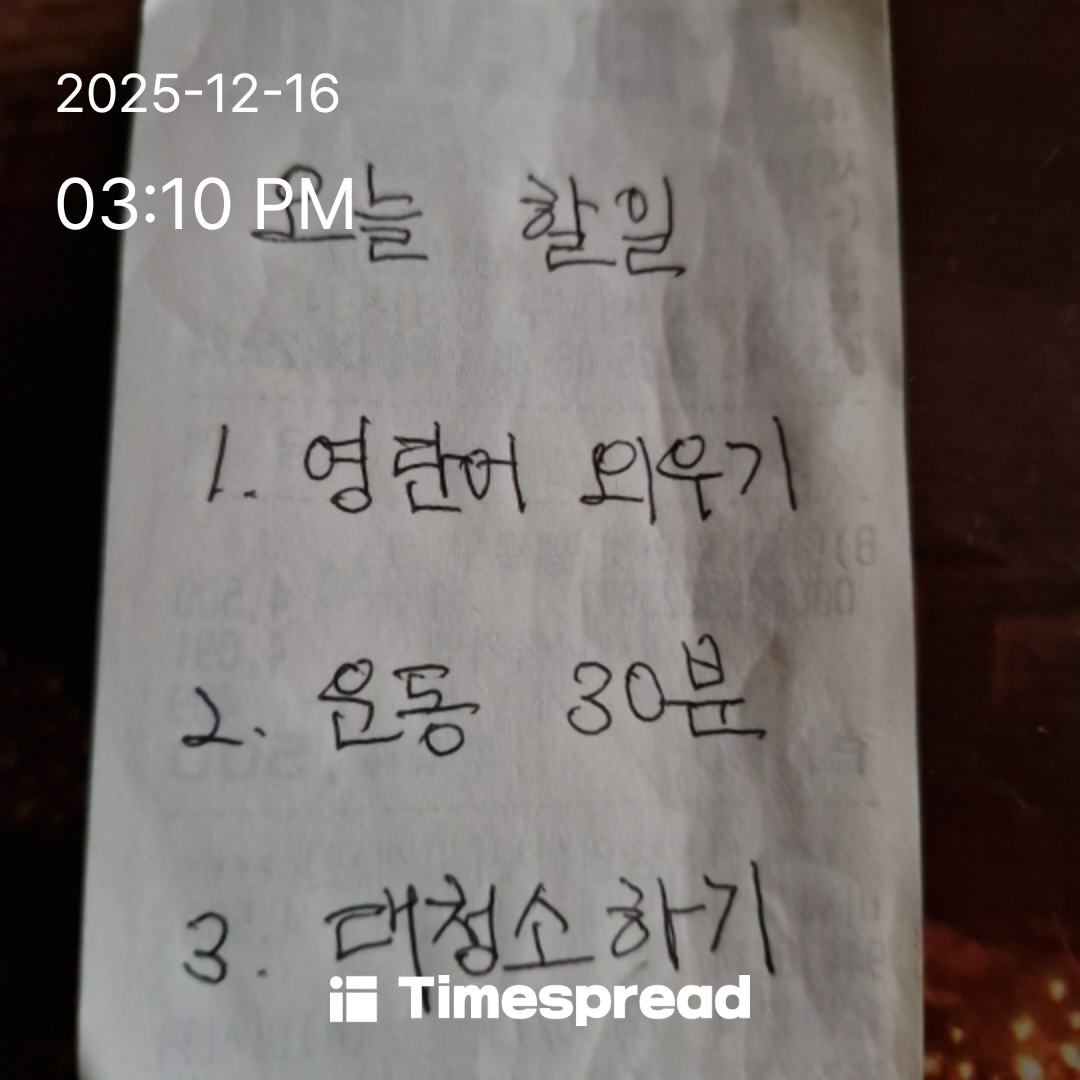 2025-12-16
03:10 PM
오늘 할일
1. 영단어 외우기
2. 운동 30분
3. 대청소하기
Timespread